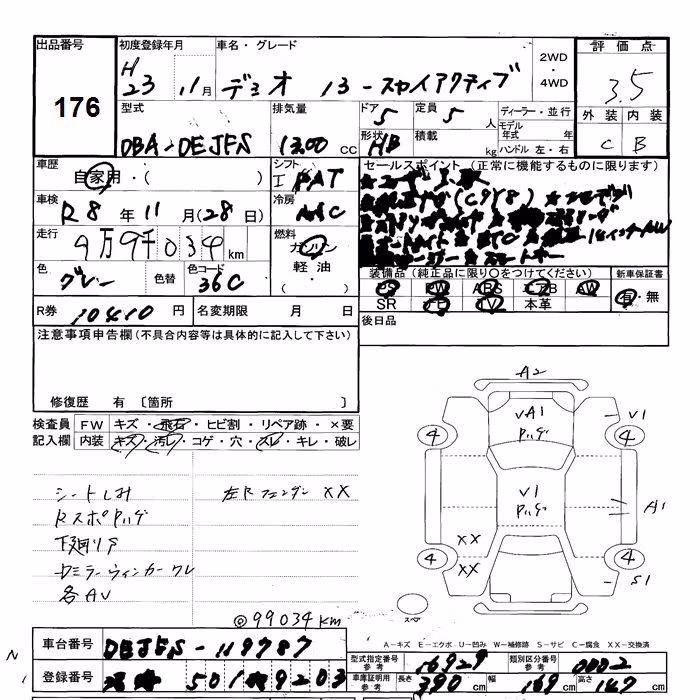 出品番号
176
初度登録年月
H 23 11月
車名・グレード
デミオ 13-スカイアクティブ
2WD
・
4WD
評価点
3.5
外装 内装
C B
型式
DBA-DEJFS
排気量
1300 cc
ドア
5
形状
HB
定員
5 人
積載 kg
ディーラー・並行
モデル年式 年
ハンドル 左・右
車歴
自家用・( )
シフト
I FAT
セールスポイント (正常に機能するものに限ります)
車検
R8年11月(28日)
冷房
AAC
走行
9万9千034km
燃料
ガソリン
軽油
・( )
色
グレー
色替
色コード
36C
装備品(純正品に限り○をつけてください)
PS PW ABS エアB AW
SR ナビ TV 本革
新車保証書
有・無
R券 10410円
名変期限 月 日
後日品
注意事項申告欄(不具合内容等は具体的に記入して下さい)
修復歴 有 〔箇所 〕
検査員記入欄
FW キズ・飛石・ヒビ割・リペア跡・×要
内装 キズ・汚レ・コゲ・穴・スレ・キレ・破レ
シートしみ
左Rフェンダー XX
RスポPハゲ
下廻りS
ウインカーワレ
各AU
◎99034km
A2
VA1
Pハゲ
V1
4
4
V1
Pハゲ
A1
XX
XX
4
4
S1
スペア
A-キズ E-エクボ U-凹み W-補修跡 S-サビ C-腐食 XX-交換済
車台番号 DEJFS-119787
型式指定番号 参考 16929
類別区分番号 参考 0002
登録番号 501 9203
車庫証明用 参考 長さ 390cm 幅 169cm 高さ 147cm